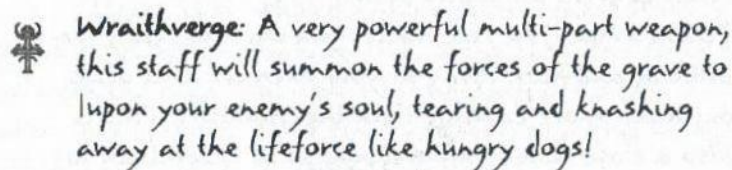 Wraithverge: A very powerful multi-part weapon,
this staff will summon the forces of the grave to
lupon your enemy's soul, tearing and knashing
away at the lifeforce like hungry dogs!